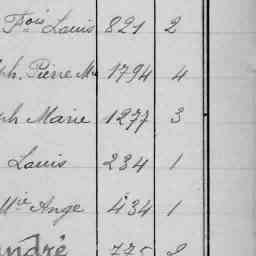 Fois Louis 821 2
ph. Pierre Mie 1794 4
ph Marie 1277 3
Louis 234 1
Mie Ange 434 1
andré 775